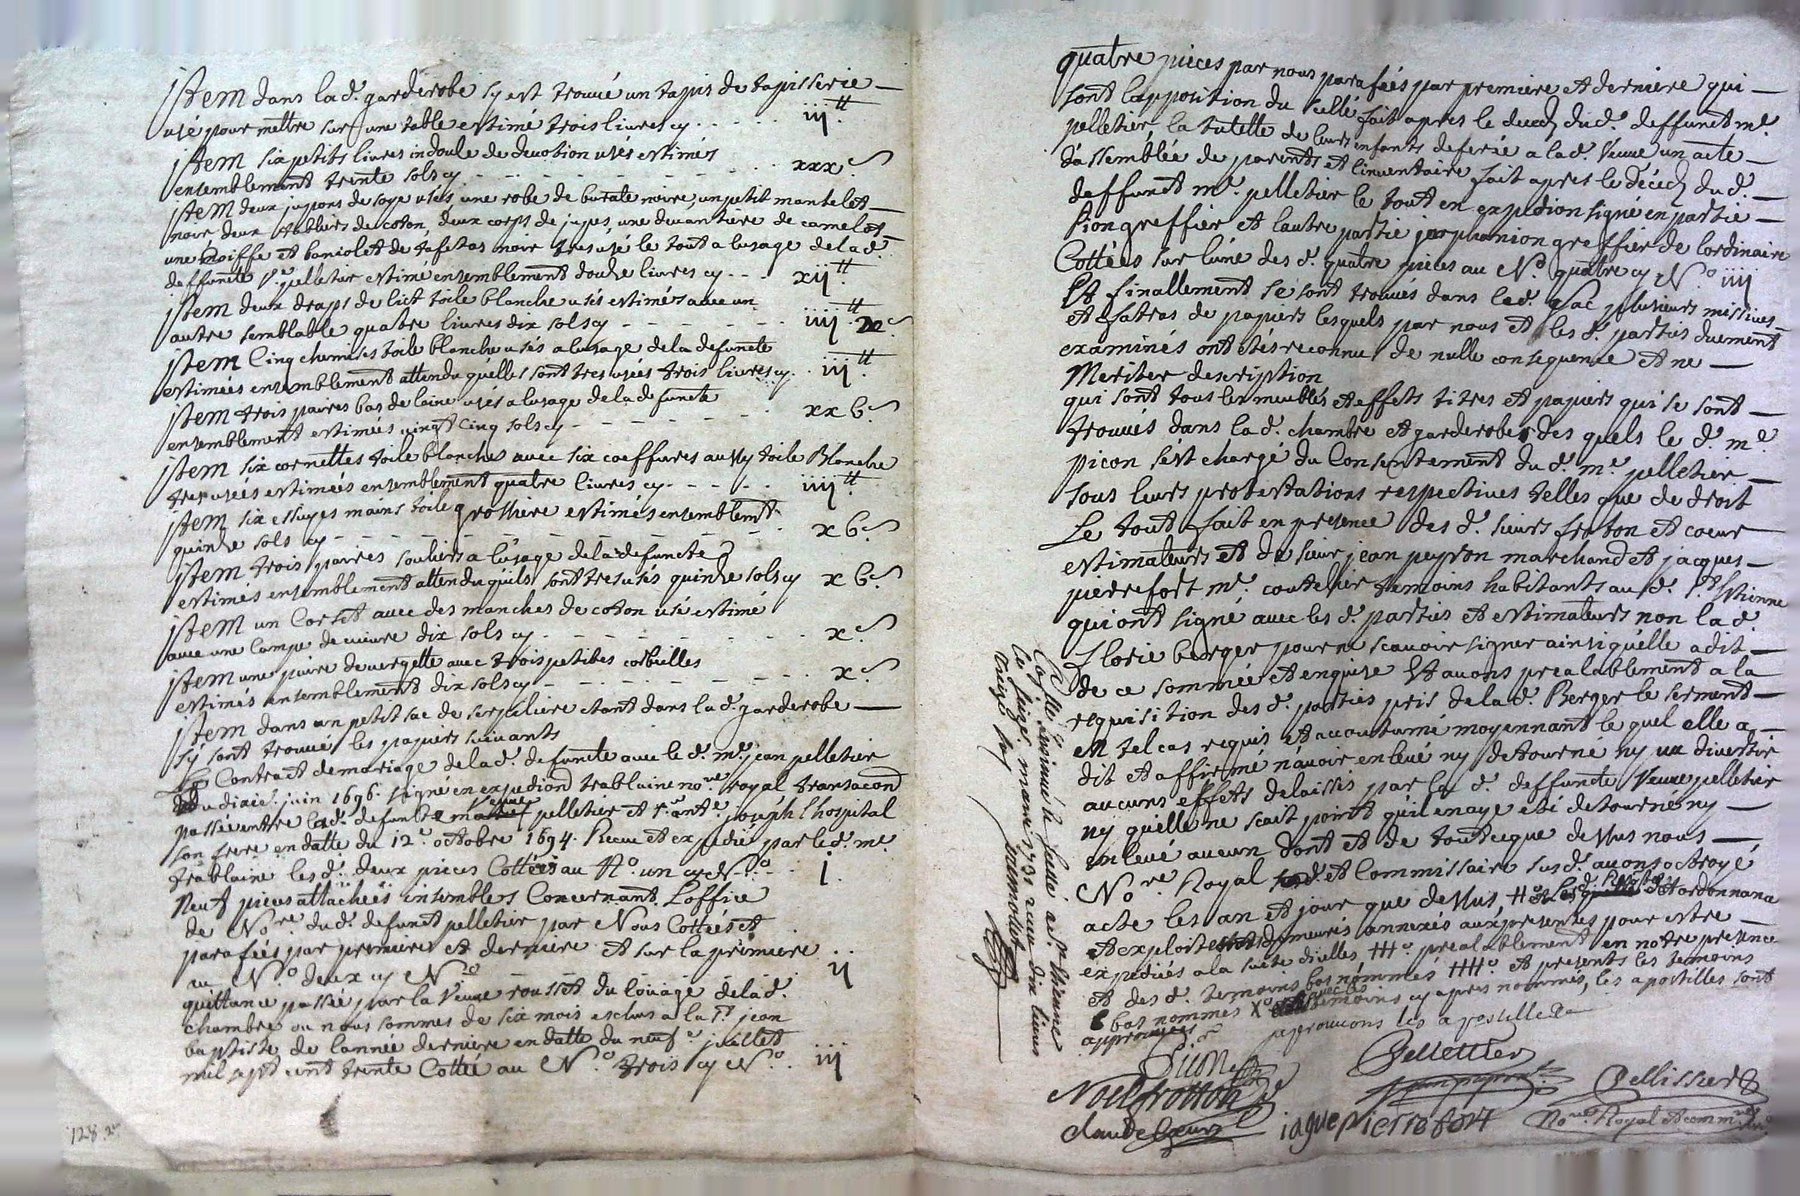 jtem dans la d. garderobe sy est trouvé un tapis de tapisserie
usé pour mettre sur une table estimé trois livres cy . . . . . iij.tt
jtem six petits livres in doule de devotion usés estimés
ensemblement trente sols cy . . . xxx s
jtem deux jupons de soye usés, une robe de burate noire, un petit mantelet
noir deux tabliers de coton, deux corps de jupes, une devantiere de camelot
une Coiffe et baniolet de tafetas noir tres usé le tout a lusage de la d.
deffuncte v.e pelletier estimé ensemblement douze livres cy . . . xij.tt
jtem deux draps de lict toile blanche usés estimés avec un
autre semblable quatre livres dix sols cy . . . iiij.tt x s
jtem Cinq chemises toile blanche usés a lusage de la defuncte
estimées ensemblement attendu quelles sont tres usées trois livres cy . . iij.tt
jtem trois paires bas de laine usés a lusage de la defuncte
ensemblement estimées vingt cinq sols cy . . . xx b s
jtem six cornettes toile blanches avec six coeffures aussy toile Blanche
tres usées estimées ensemblement quatre livres cy . . . iiij.tt
jtem six essuyes mains toile grossiere estimés ensemblemt
quinze sols cy . . . x b s
jtem trois paires souliers a lusage de la defuncte
estimés ensemblement attendu quils sont tres usés quinze sols cy x b s
jtem un Corset avec des manches de coton usé estimé
avec une Lampe de cuivre dix sols cy . . . x s
jtem une paire de vergette avec trois petites corbeilles
estimés ensemblement dix sols cy . . . x s
jtem dans un petit sac de serpiliere etant dans la d. garderobe
sy sont trouvé les papiers suivants
Contract de mariage de la d. defuncte avec le d. me. jean pelletier
du dixie. juin 1696. signé en expedion trablaine nore. royal transacon
passée entre la d. defuncte veuve pelletier et s.r ante. joseph lhospital
son frere en datte du 12e. octobre 1694. Receue et expediée par le d. me.
trablaine les d. deux pieces Cottées au No. un cy No. . . j.
Neuf pieces attachées insembles Concernant Loffice
de Nore. du d. defunct pelletier par Nous Cottées et
parafées par premiere et derniere et sur la premiere
au No. deux cy No. . . ij
quittance passée par la Veuve roussét du louage de la d.
chambre ou nous sommes de six mois esclus a la St. jean
baptiste de lannée derniere en datte du neufe. juillet
mil sept cent trente Cotté au No. trois cy No. . iij
128.
quatre pieces par nous parafées par premiere et derniere qui
sont lapposition du scellé fait apres le deced du d. deffunct me.
pelletier la tutelle de leurs enfants deferée a la d. Veuve un acte
dassemblée de parents et linventaire fait apres le déced du d.
deffunct me. pelletier le tout en expedion signé en partie
pion greffier et lautre partie greffier de lordinaire
Cottées sur lune des d. quatre pieces au No. quatre cy No. iiij
Et finallement se sont trouvés dans le d. sac plusieurs missives
et fatras de papiers lesquels par nous et les d. parties duement
examinés ont étés reconnu de nulle consequence et ne
Meriter description
qui sont tous les meubles et effets titres et papiers qui se sont
trouvés dans la d. chambre et garderobe des quels le d. me.
picon sest chargé du Consentement du d. me. pelletier
sous leurs protestations respectives telles que de droit
Le tout fait en presence des d. sieurs froton et coeur
estimateurs et de sieur jean peyron marchand et jacques
pierrefort me. coutelier temoins habitants au d. St. Estienne
qui ont signé avec les d. parties et estimateurs non la d.
florie berger pour ne scavoir signer ainsi quelle a dit
de ce sommée et enquise Et avons prealablement a la
requisition des d. parties pris de la d. Berger le serment
en tel cas requis et accoutumé moyennant le quel elle a
dit et affirmé navoir enlevé ny detourné ny diverti
aucuns effets delaissés par la d. deffuncte Veuve pelletier
ny quelle ne scait point quil en aye eté detourné ny
enlevé aucun dont et de tout ce que dessus nous
Nore. Royal et Commissaire sus d. avons octroyé
acte les an et jour que dessus, et ordonnance
et exploit demeurés annexés aux presentes pour estre
expediés a la suite dicelles ttto. prealablement en notre presence
et des d. temoins bas nommés tttto. et presents les temoins
bas nommés Xo. avec les temoins cy apres nommés, les apostilles sont
approuvées
approuvons les apostilles
Picon
Pelletier
Noel frotton
jean peyron
Pellissier
Claude Coeur
iaque Pierrefort
Nore. Royal et comm.re
Collé Insinué a St. Etienne
le mars 1731 receu dix livres